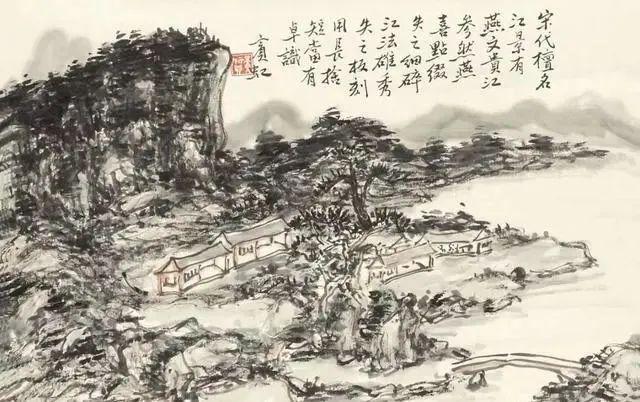 宋代擅名
江景有
燕文貴江
參然燕
喜點綴
失之細碎
江法雄秀
失之板刻
用長捨
短當有
卓識
賓虹